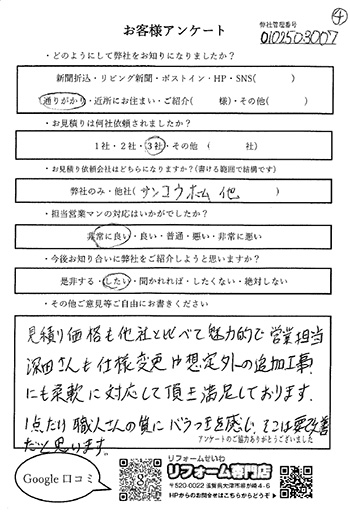 ④
お客様アンケート
弊社管理番号
0102503007
・どのようにして弊社をお知りになりましたか？
新聞折込・リビング新聞・ポストイン・HP・SNS(　　　)
通りがかり・近所にお住まい・ご紹介(　　　様)・その他(　　　)
・お見積りは何社依頼されましたか？
1社・2社・3社・その他（　　　社）
・お見積り依頼会社はどちらになりますか？(書ける範囲で結構です)
弊社のみ・他社( サンコウホーム 他 )
・担当営業マンの対応はいかがでしたか？
非常に良い・良い・普通・悪い・非常に悪い
・今後お知り合いに弊社をご紹介しようと思いますか？
是非する・したい・聞かれれば・したくない・絶対しない
・その他ご意見等ご自由にお書きください
見積り価格も他社と比べて魅力的で営業担当
深田さんも仕様変更や想定外の追加工事
にも柔軟に対応して頂き満足しております。
1点だけ職人さんの質にバラつきを感じ、そこは要改善
だと思います。
アンケートのご協力ありがとうございました
Google口コミ
リフォームせいわ
リフォーム専門店
〒520-0022 滋賀県大津市柳が崎4-6
HPからのお問合せはこちらからどうぞ